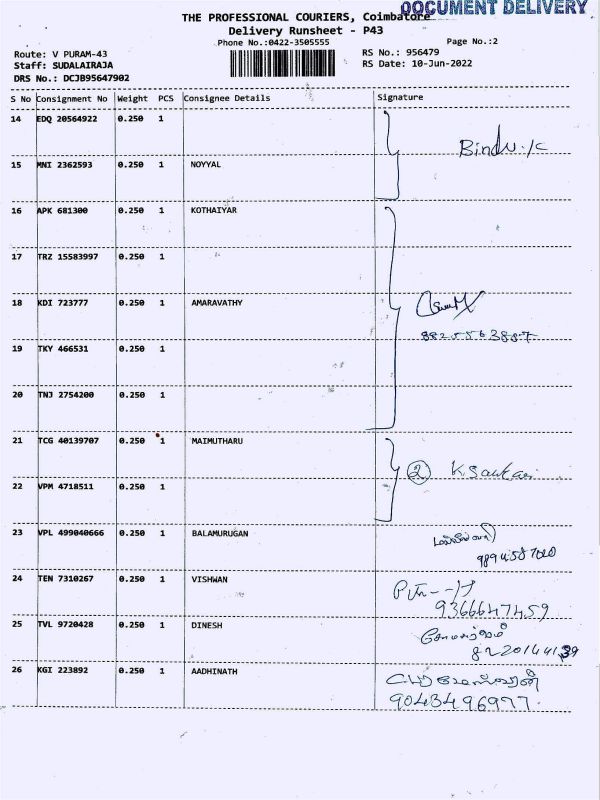 DOCUMENT DELIVERY
THE PROFESSIONAL COURIERS, Coimbatore
Delivery Runsheet - P43
Phone No.:0422-3505555 Page No.:2
Route: V PURAM-43 RS No.: 956479
Staff: SUDALAIRAJA RS Date: 10-Jun-2022
DRS No.: DCJB95647902
S No Consignment No Weight PCS Consignee Details Signature
14 EDQ 20564922 0.250 1
Bindu.K
15 MNI 2362593 0.250 1 NOYYAL
16 APK 681300 0.250 1 KOTHAIYAR
17 TRZ 15583997 0.250 1
18 KDI 723777 0.250 1 AMARAVATHY
8825563887
19 TKY 466531 0.250 1
20 TNJ 2754200 0.250 1
21 TCG 40139707 0.250 1 MAIMUTHARU
2 K Sankari
22 VPM 4718511 0.250 1
23 VPL 499040666 0.250 1 BALAMURUGAN
9894587020
24 TEN 7310267 0.250 1 VISHWAN
9366647459
25 TVL 9720428 0.250 1 DINESH
8220144139
26 KGI 223892 0.250 1 AADHINATH
9043496977